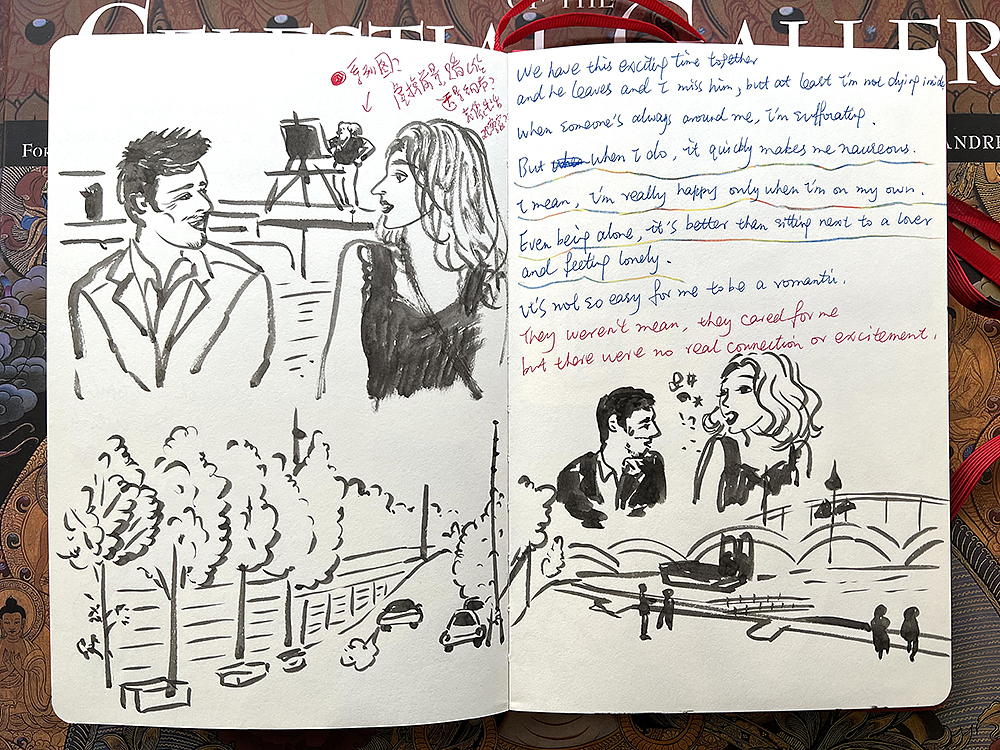 OF THE
CELESTIAL GALLER
FOR
ANDRE
手刻图?
虚接前景
We have this exciting time together
and he leaves and I miss him, but at least I'm not dying inside
When someone's always around me, I'm suffocating.
But when I do, it quickly makes me nauseous.
I mean, I'm really happy only when I'm on my own.
Even being alone, it's better than sitting next to a lover
and feeling lonely.
It's not so easy for me to be a romantic.
They weren't mean, they cared for me
but there were no real connection or excitement.